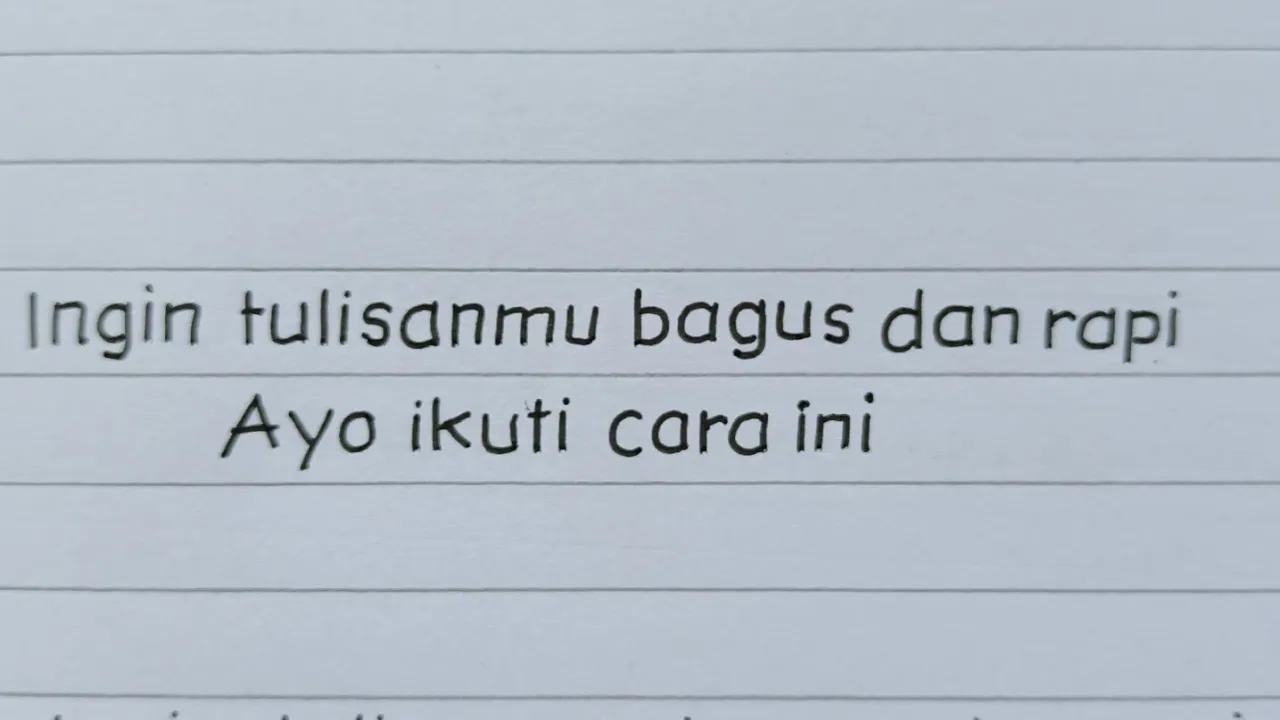 Ingin tulisanmu bagus dan rapi
Ayo ikuti cara ini